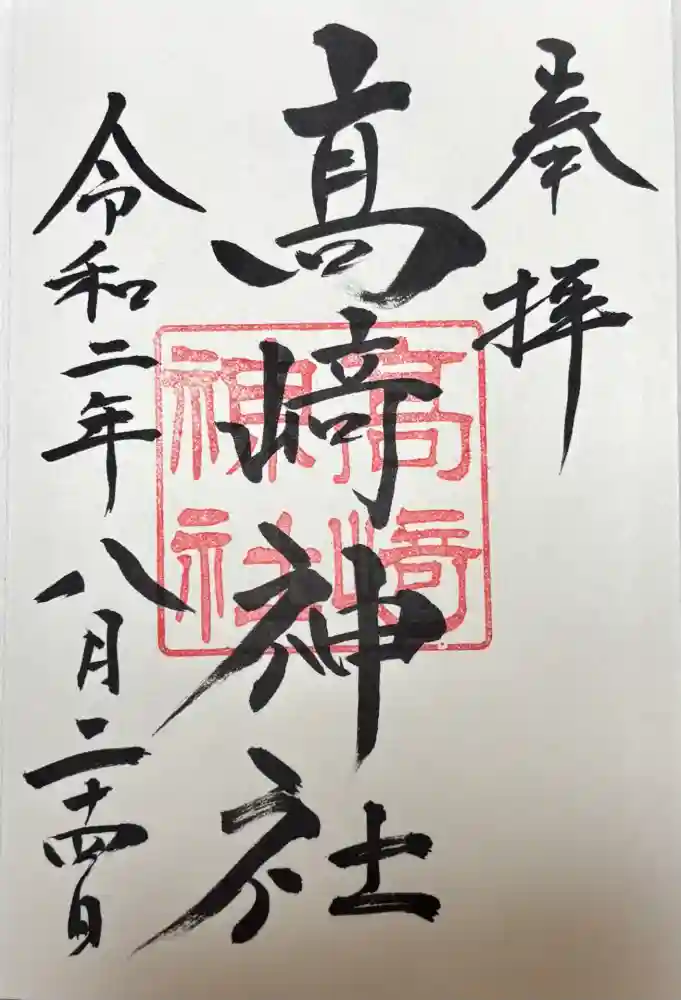 奉拝
髙﨑神社
高﨑
神社
令和二年八月二十四日